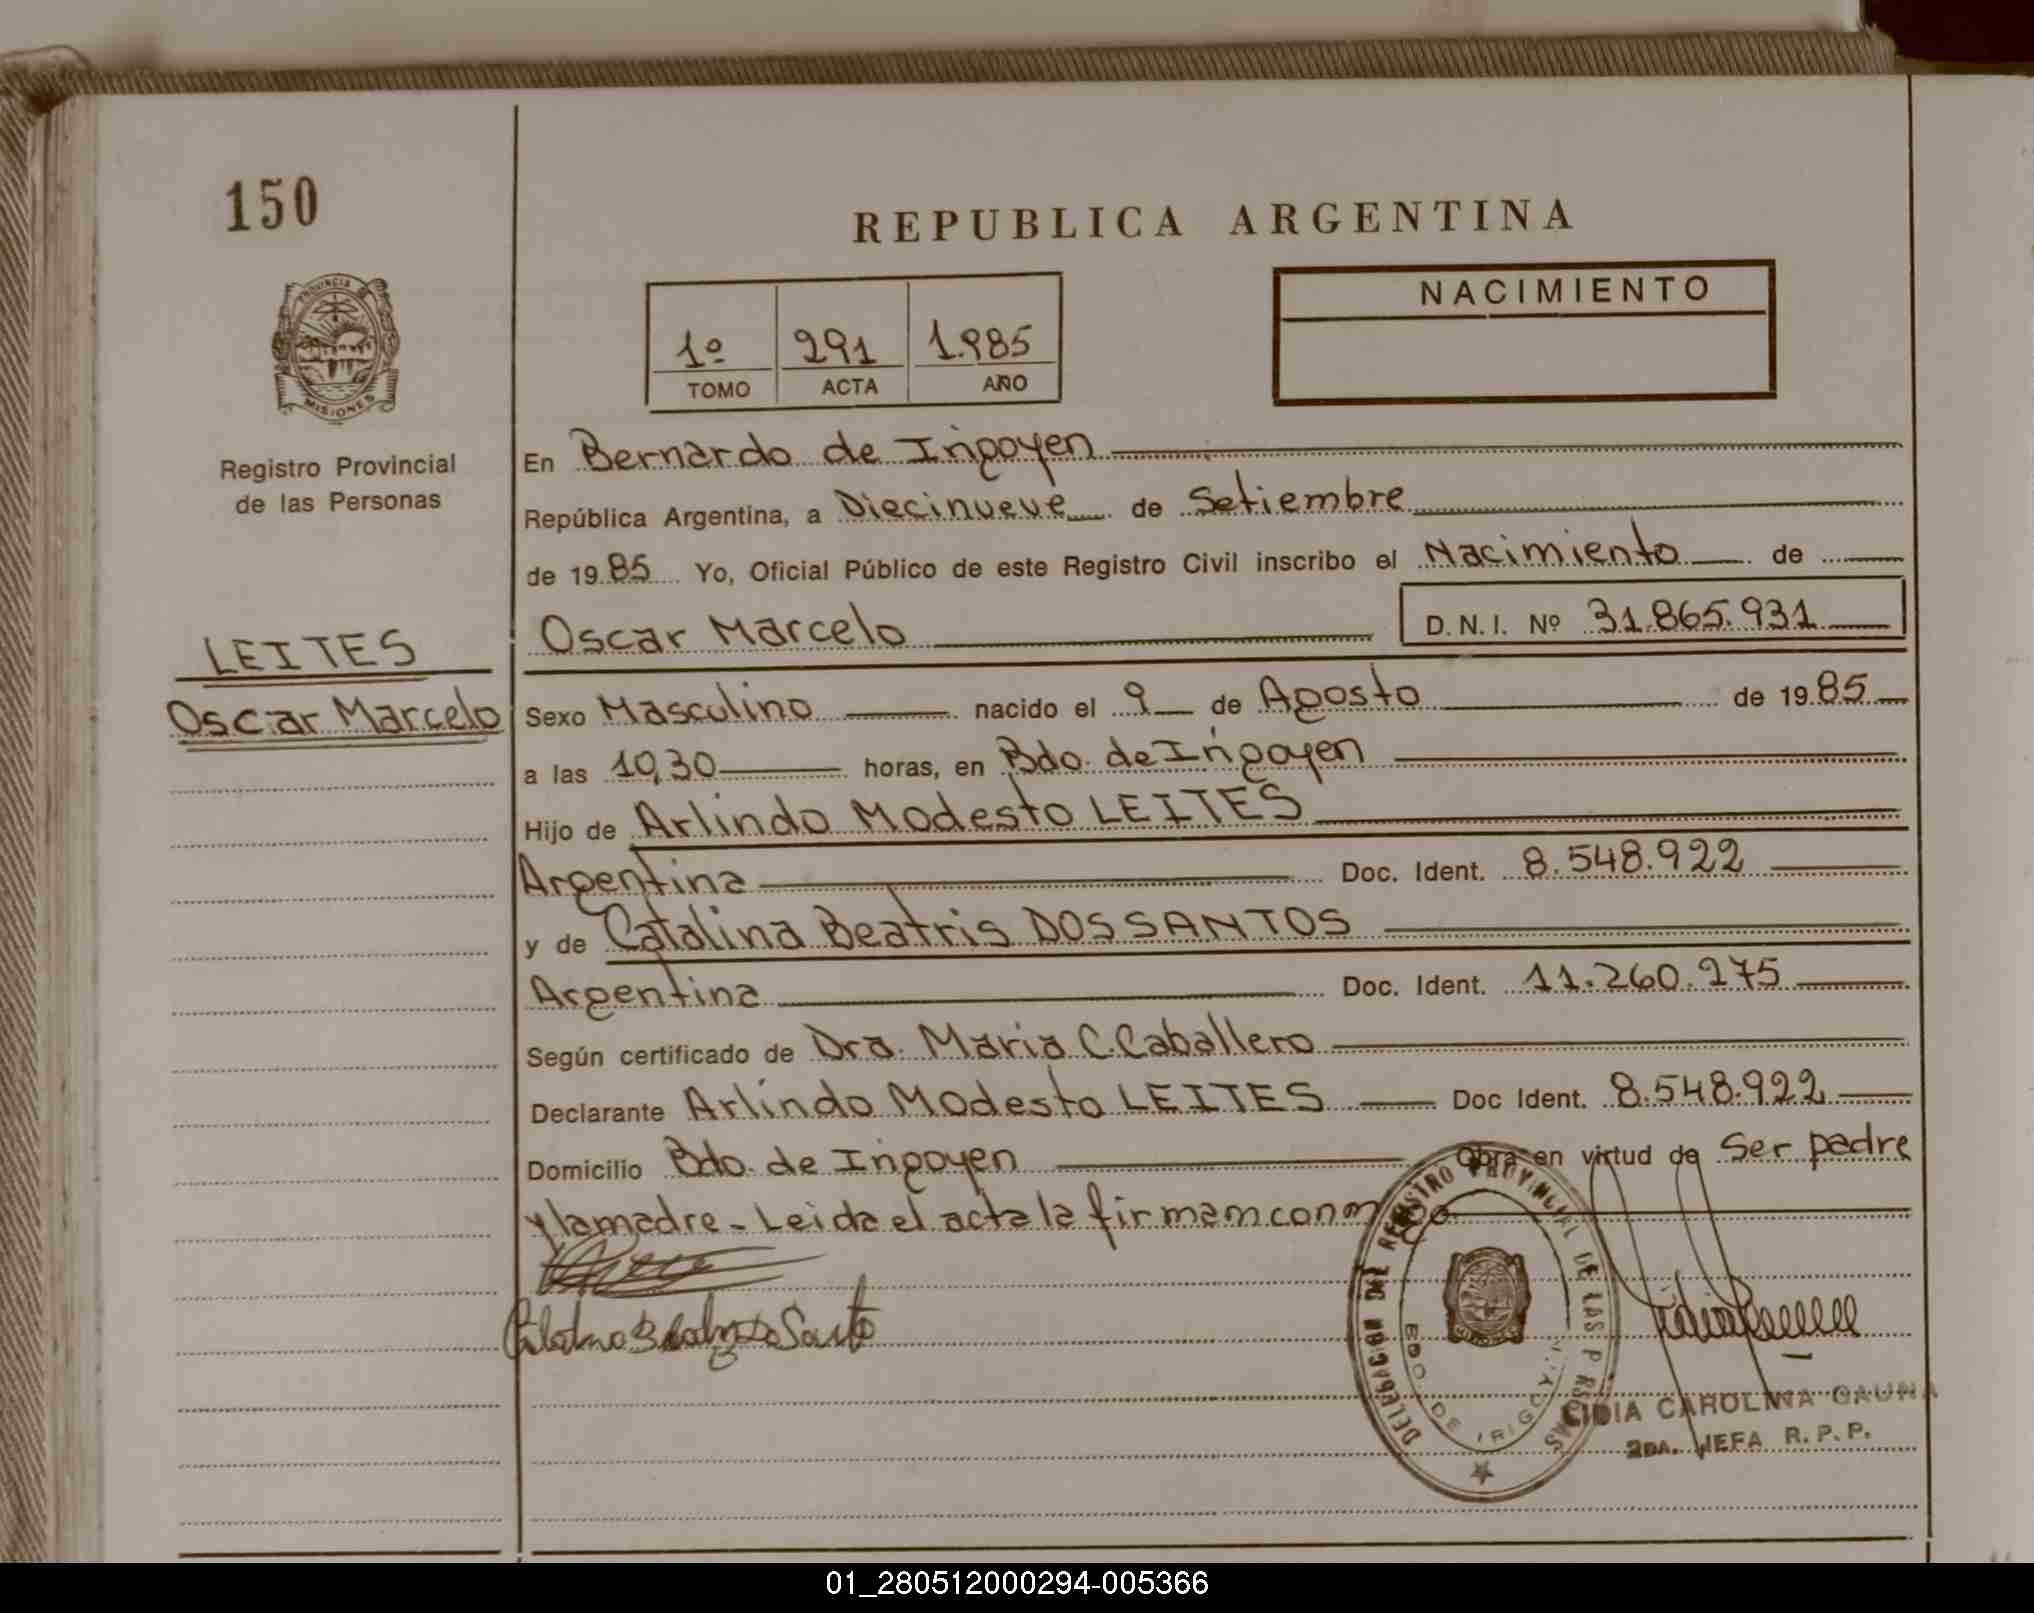 150
REPUBLICA ARGENTINA
PROVINCIA DE
MISIONES
Registro Provincial
de las Personas
NACIMIENTO
1º 291 1.985
TOMO ACTA AÑO
En Bernardo de Irigoyen
República Argentina, a Diecinueve de Setiembre
de 1985 Yo, Oficial Público de este Registro Civil inscribo el Nacimiento de
Oscar Marcelo D.N.I. Nº 31.865.931
LEITES
Oscar Marcelo
Sexo Masculino nacido el 9 de Agosto de 1985
a las 10,30 horas, en Bdo. de Irigoyen
Hijo de Arlindo Modesto LEITES
Argentina Doc. Ident. 8.548.922
y de Catalina Beatris DOS SANTOS
Argentina Doc. Ident. 11.260.275
Según certificado de Dra. Maria C. Caballero
Declarante Arlindo Modesto LEITES Doc Ident. 8.548.922
Domicilio Bdo. de Irigoyen Obra en virtud de Ser padre
y la madre - Leida el acta la firman conmigo
DELEGACION DEL REGISTRO PROVINCIAL DE LAS PERSONAS
BDO. DE IRIGOYEN
LIDIA CAROLINA GAUNA
2DA. JEFA R.P.P.
01_280512000294-005366